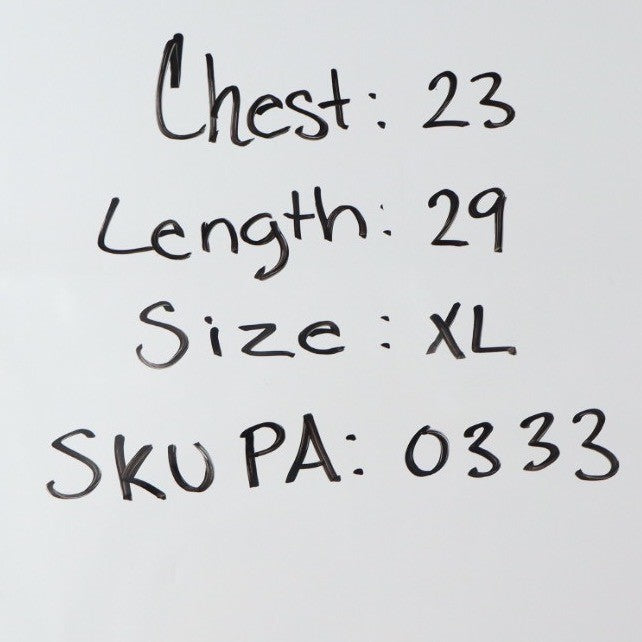 Chest: 23
Length: 29
Size: XL
SKU PA: 0333